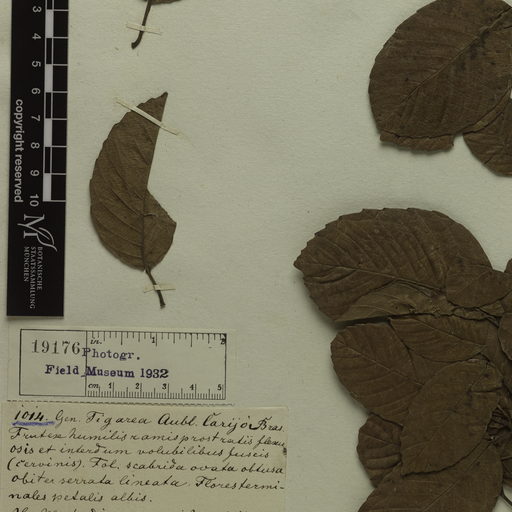 3
4
5
6
7
8
9
10
copyright reserved
BOTANISCHE
STAATSSAMMLUNG
MÜNCHEN
19176 Photogr.
Field Museum 1932
in. 1 2
cm. 1 2 3 4 5
1014. Gen. Tigarea Aubl. Carijó Bras.
Frutex humilis ramis prostratis flexu
osis et interdum volubilibus fuscis
(cervinis). Fol. scabrida ovata obtusa
obiter serrata lineata. Flores termi-
nales petalis albis.